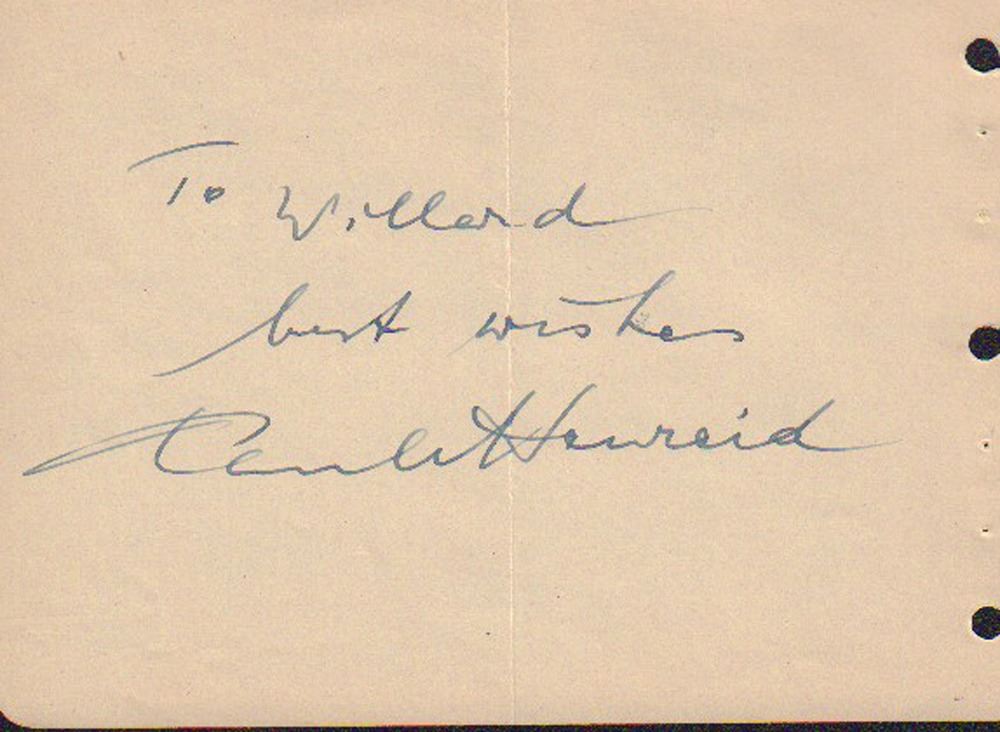 To Willard
best wishes
Paul Henreid